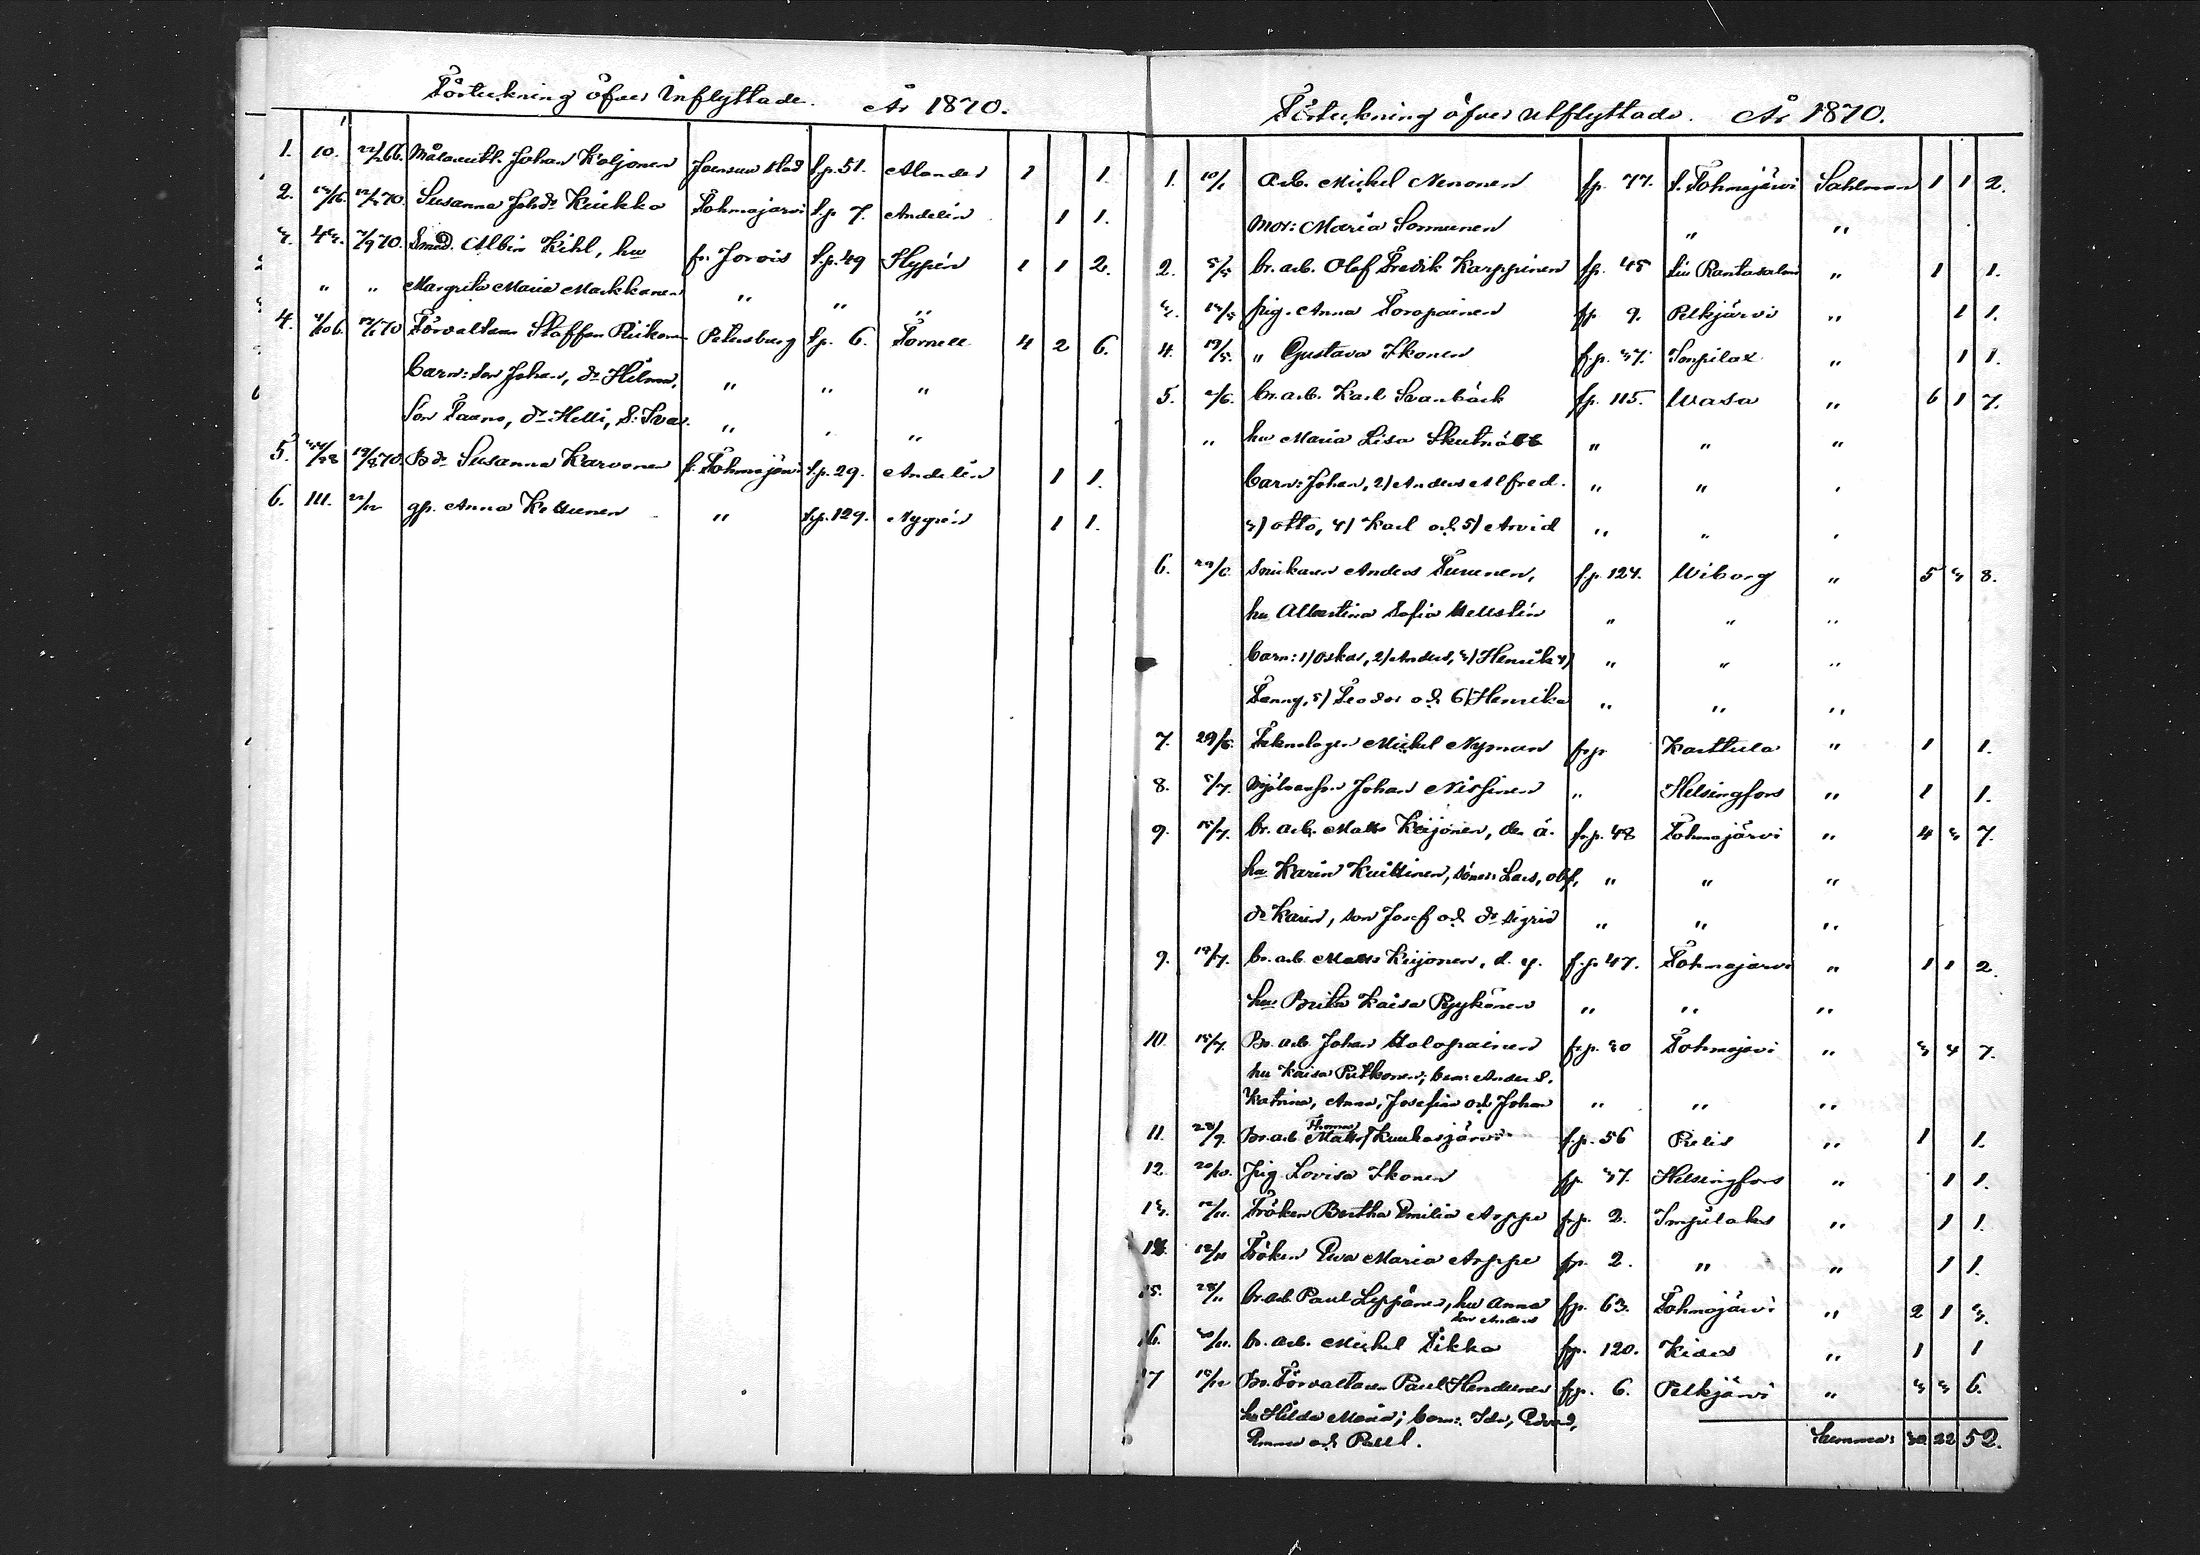 Förteckning öfver Inflyttade. År 1870.
1. 10. 22/2 66. Målaremstr. Johan Koljonen Joensuu stad f.p. 51. Alander 1 1.
2. 13/16. 12/2 70. Susanna Johdr Kiukka Tohmajärvi f.p. 7. Andelin 1 1.
3. 43. 7/9 70. Smed. Albin Kihl, hu fr. Jorois f.p. 49 Hypén 1 1 2.
" " Margreta Maria Markkanen " " "
4. 106. 70 Förvaltaren Staffan Piikonen Petersburg f.p. 6. Törnell 4 2 6.
Barn: son Johan, dr Hilma, " " "
Son Taano, dr Helli, S. Ivar. " " "
5. 19/8 70. Bdr Susanna Karvonen f. Tohmajärvi f.p. 29. Andelin 1 1.
6. 111. 22/12 gp. Anna Kettunen " f.p. 129. Nygrén 1 1.
Förteckning öfver Utflyttade. År 1870.
1. 10/1 Arb. Michel Nenonen fp. 77. f. Tohmajärvi Sahlman 1 1 2.
Mor: Maria Sormunen " "
2. 5/5 br. arb. Olof Fredik Karppinen fp. 45 till Rantasalmi " 1 1.
3. 13/5 pig. Anna Toropainen fp 9. Pelkjärvi " 1 1.
4. 19/5. " Gustava Ikonen f.p. 37. Impilax " 1 1.
5. 2/6. br. arb. Karl Svanbäck fp. 115. Wasa " 6 1 7.
" hu Maria Lisa Skutnäbb " " "
barn: Johan, 2/ Anders Alfred. " " "
3/ Otto, 4/ Karl och 5/ Arvid " " "
6. 29/6. Snickaren Anders Turunen, f.p. 124. Wiborg " 5 3 8.
hu Albertina Sofia Wellstén " " "
barn: 1/ Oskar, 2/ Anders, 3/ Henrik 4/ " " "
Fanny, 5/ Feodor och 6/ Henrika " " "
7. 29/6. Teknologen Michel Nyman f.p. Karttula " 1 1.
8. 5/7. Mjölnareson Johan Nissinen " Helsingfors " 1 1.
9. 15/7. br. arb. Matts Keijonen, den ä. f.p. 48 Tohmajärvi " 4 3 7.
hu Karin Kuittinen, söner: Lars, Olof, " " "
dr Karin, son Josef och dr Sigrid " " "
9. 19/7. br. arb. Matts Keijonen, d. y. f.p. 47. Tohmajärvi " 1 1 2.
hu Brita Kaisa Pyykönen " " "
10. 15/7. Br. arb. Johan Holopainen f.p. 30 Tohmajärvi " 3 4 7.
hu Kaisa Pitkonen; barn: Anders.
Katrina, Anna, Josefina och Johan " " "
11. 28/9. Br. arb. Thomas Matts. Kuukasjärvi f.p. 56 Pielis " 1 1.
12. 20/10. Pig Lovisa Ikonen fp. 37. Helsingfors " 1 1.
13. 12/11. Fröken Bertha Emilia Arppe f.p. 2. Impilaks " 1 1.
14. 12/11 Fröken Eva Maria Arppe fp. 2. " " 1 1.
15. 28/11 br. arb. Paul Leppänen, hu Anna fp. 63. Tohmajärvi " 2 1 3.
son Anders
16. 30/11. br. arb. Michel Sikka fp. 120. Kides " 1 1
17 10/12 Br. Förvaltaren Paul Hendunen fp. 6. Pelkjärvi " 3 3 6.
hu Hilda Maria; barn: Ida, Edvard,
Emma och Paul.
Summa: 30 22 52.